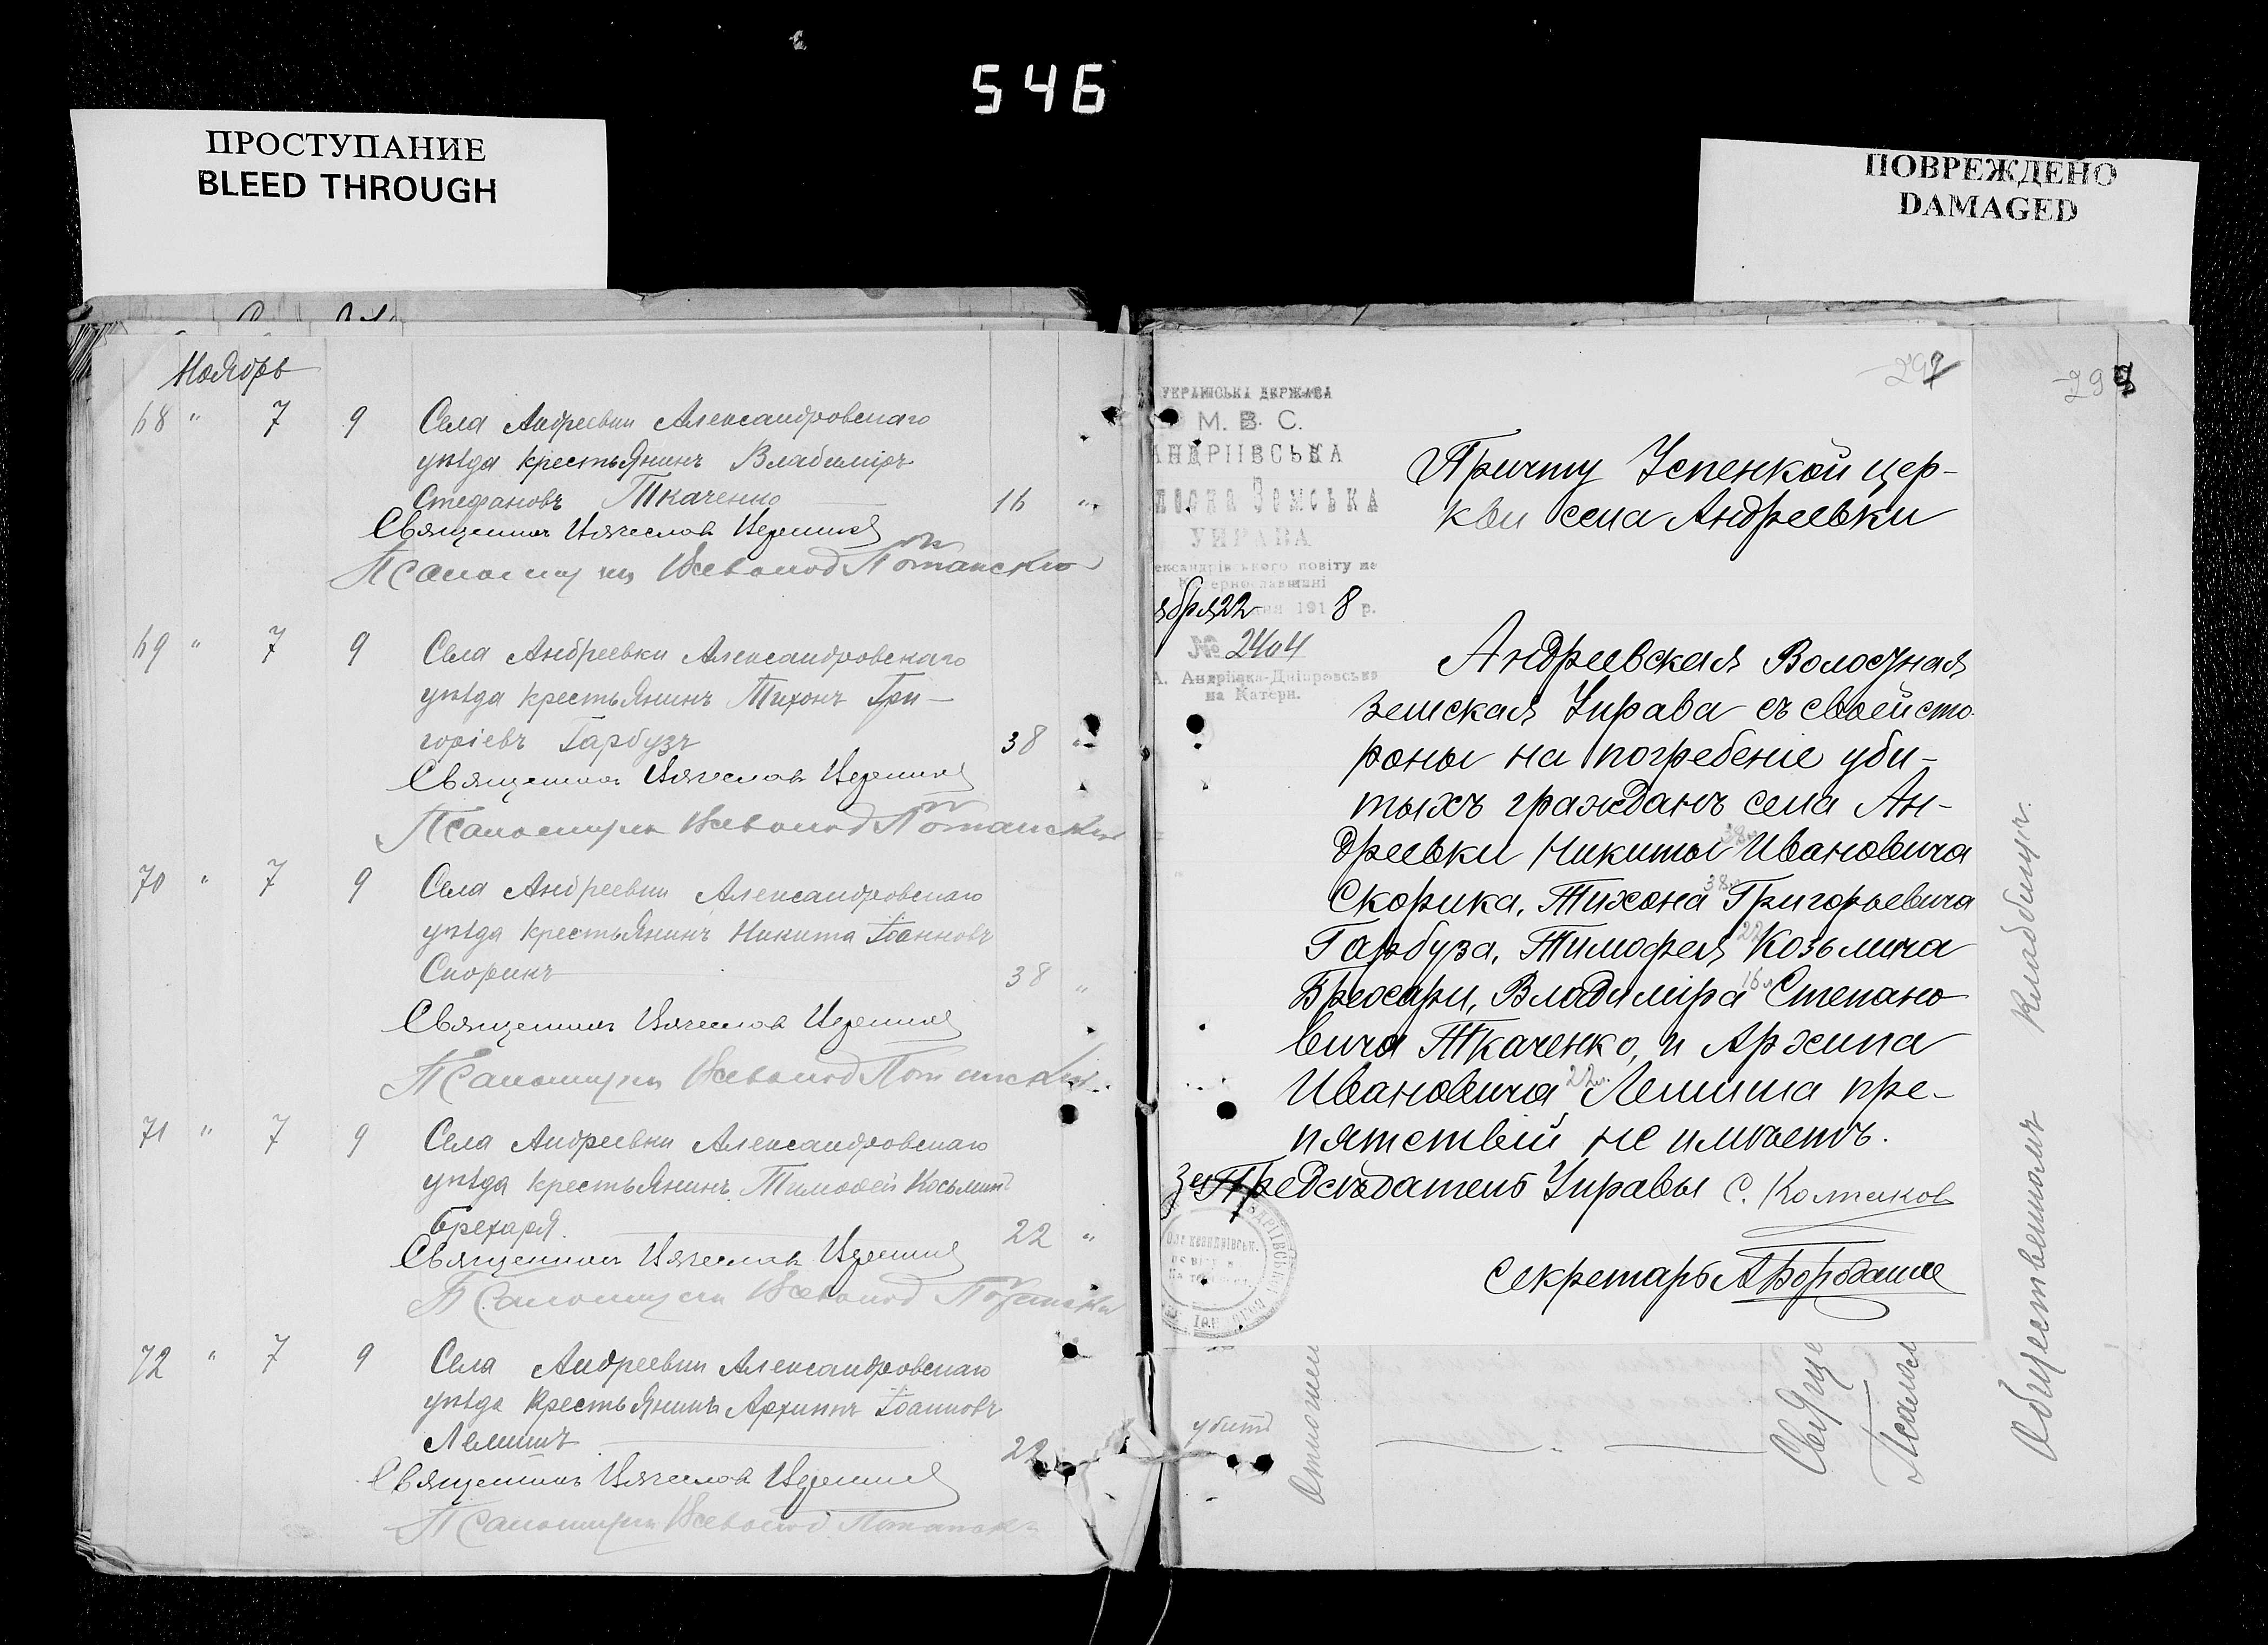 546
ПРОСТУПАНИЕ
BLEED THROUGH
ПОВРЕЖДЕНО
DAMAGED
Ноябрь
68 " 7 9 Села Андреевки Александровскаго
уѣзда крестьянинъ Владиміръ
Стефановъ Ткаченко 16 "
Священникъ Вячеслав
Псаломщикъ Всеволод Потапский
69 " 7 9 Села Андреевки Александровскаго
уѣзда крестьянинъ Тихонъ Гри-
горіевъ Гарбузъ 38 "
Священникъ Вячеслав
Псаломщикъ Всеволод Потапский
70 " 7 9 Села Андреевки Александровскаго
уѣзда крестьянинъ Никита Іоанновъ
Скорикъ 38 "
Священникъ Вячеслав
Псаломщикъ Всеволод Потапский
71 " 7 9 Села Андреевки Александровскаго
уѣзда крестьянинъ Тимофей Косьминъ
Брехаря 22 "
Священникъ Вячеслав
Псаломщикъ Всеволод
72 " 7 9 Села Андреевки Александровскаго
уѣзда крестьянинъ Архиппъ Іоанновъ
Лемишъ 22
Священникъ Вячеслав
Псаломщикъ Всеволод
УКРАИНСЬКА ДЕРЖАВА
М. В. С.
АНДРІІВСЬКА
Земська
УПРАВА
повіту на
ября 22 1918 р.
№ 2404
А. Андріівка-Дніпровська
на Катерн.
297
Причту Успенкой цер-
кви села Андреевки
Андреевская Волостная
земская Управа съ своей сто-
роны на погребеніе уби-
тыхъ гражданъ села Ан-
дреевки Никиты 38 л Ивановича
Скорика, Тихона 38 л Григорьевича
Гарбуза, Тимофея 22 Козьмича
Брехари, Владиміра 16 л Степано
вича Ткаченко, и Архипа
Ивановича 22 л. Лемиша пре-
пятствій не имѣетъ.
За Предсѣдатель Управы С. Колпаков
Секретарь А Бородаше
убитъ
Отношен
Свяще
Псалом
Общественномъ кладбищѣ.
297